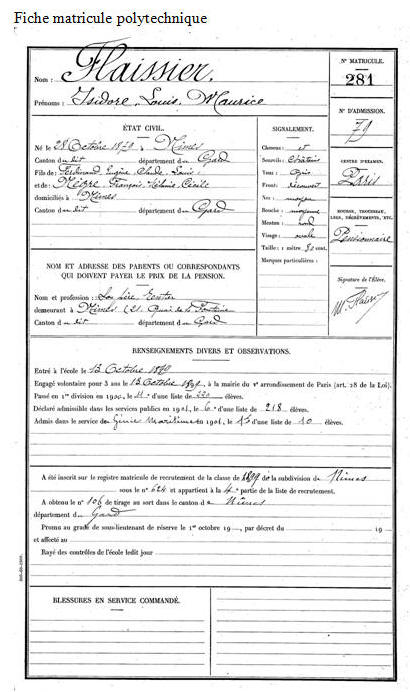 Fiche matricule polytechnique
Nom : Flaissier.
Prénoms : Isidore, Louis, Maurice
N° MATRICULE.
281
N° D'ADMISSION.
79
CENTRE D'EXAMEN.
Paris
BOURSE, TROUSSEAU,
LEGS, DÉGRÈVEMENTS, ETC.
Pensionnaire
Signature de l'Élève.
ÉTAT CIVIL.
Né le 28 Octobre 1879 à Nîmes
Canton du dit département du Gard
Fils de : Ferdinand, Eugène, Claude, Louis
et de : Nègre, François, Mélanie, Cécile
domiciliés à Nîmes
Canton du dit département du Gard
SIGNALEMENT.
Cheveux : et
Sourcils : Châtains
Yeux : Gris
Front : découvert
Nez : moyen
Bouche : moyenne
Menton : rond
Visage : ovale
Taille : 1 mètre cent.
Marques particulières :
NOM ET ADRESSE DES PARENTS OU CORRESPONDANTS
QUI DOIVENT PAYER LE PRIX DE LA PENSION.
Nom et profession : Son père, Rentier
demeurant à Nîmes (21, Quai de la Fontaine
Canton du dit département du Gard
RENSEIGNEMENTS DIVERS ET OBSERVATIONS.
Entré à l'école le 13 Octobre
Engagé volontaire pour 3 ans le 13 Octobre à la mairie du arrondissement de Paris (art. 28 de la Loi).
Passé en 1re division en 1900, le d'une liste de 220 élèves.
Déclaré admissible dans les services publics en 1901, le 6e d'une liste de 218 élèves.
Admis dans le service des Génie Maritime en 1901, le d'une liste de 10 élèves.
A été inscrit sur le registre matricule de recrutement de la classe de 1899 de la subdivision de Nîmes
sous le n° 624 et appartient à la 4e partie de la liste de recrutement.
A obtenu le n° 106 de tirage au sort dans le canton de Nîmes
département du Gard
Promu au grade de sous-lieutenant de réserve le 1er octobre 19 , par décret du 19
et affecté au
Rayé des contrôles de l'école ledit jour
BLESSURES EN SERVICE COMMANDÉ.